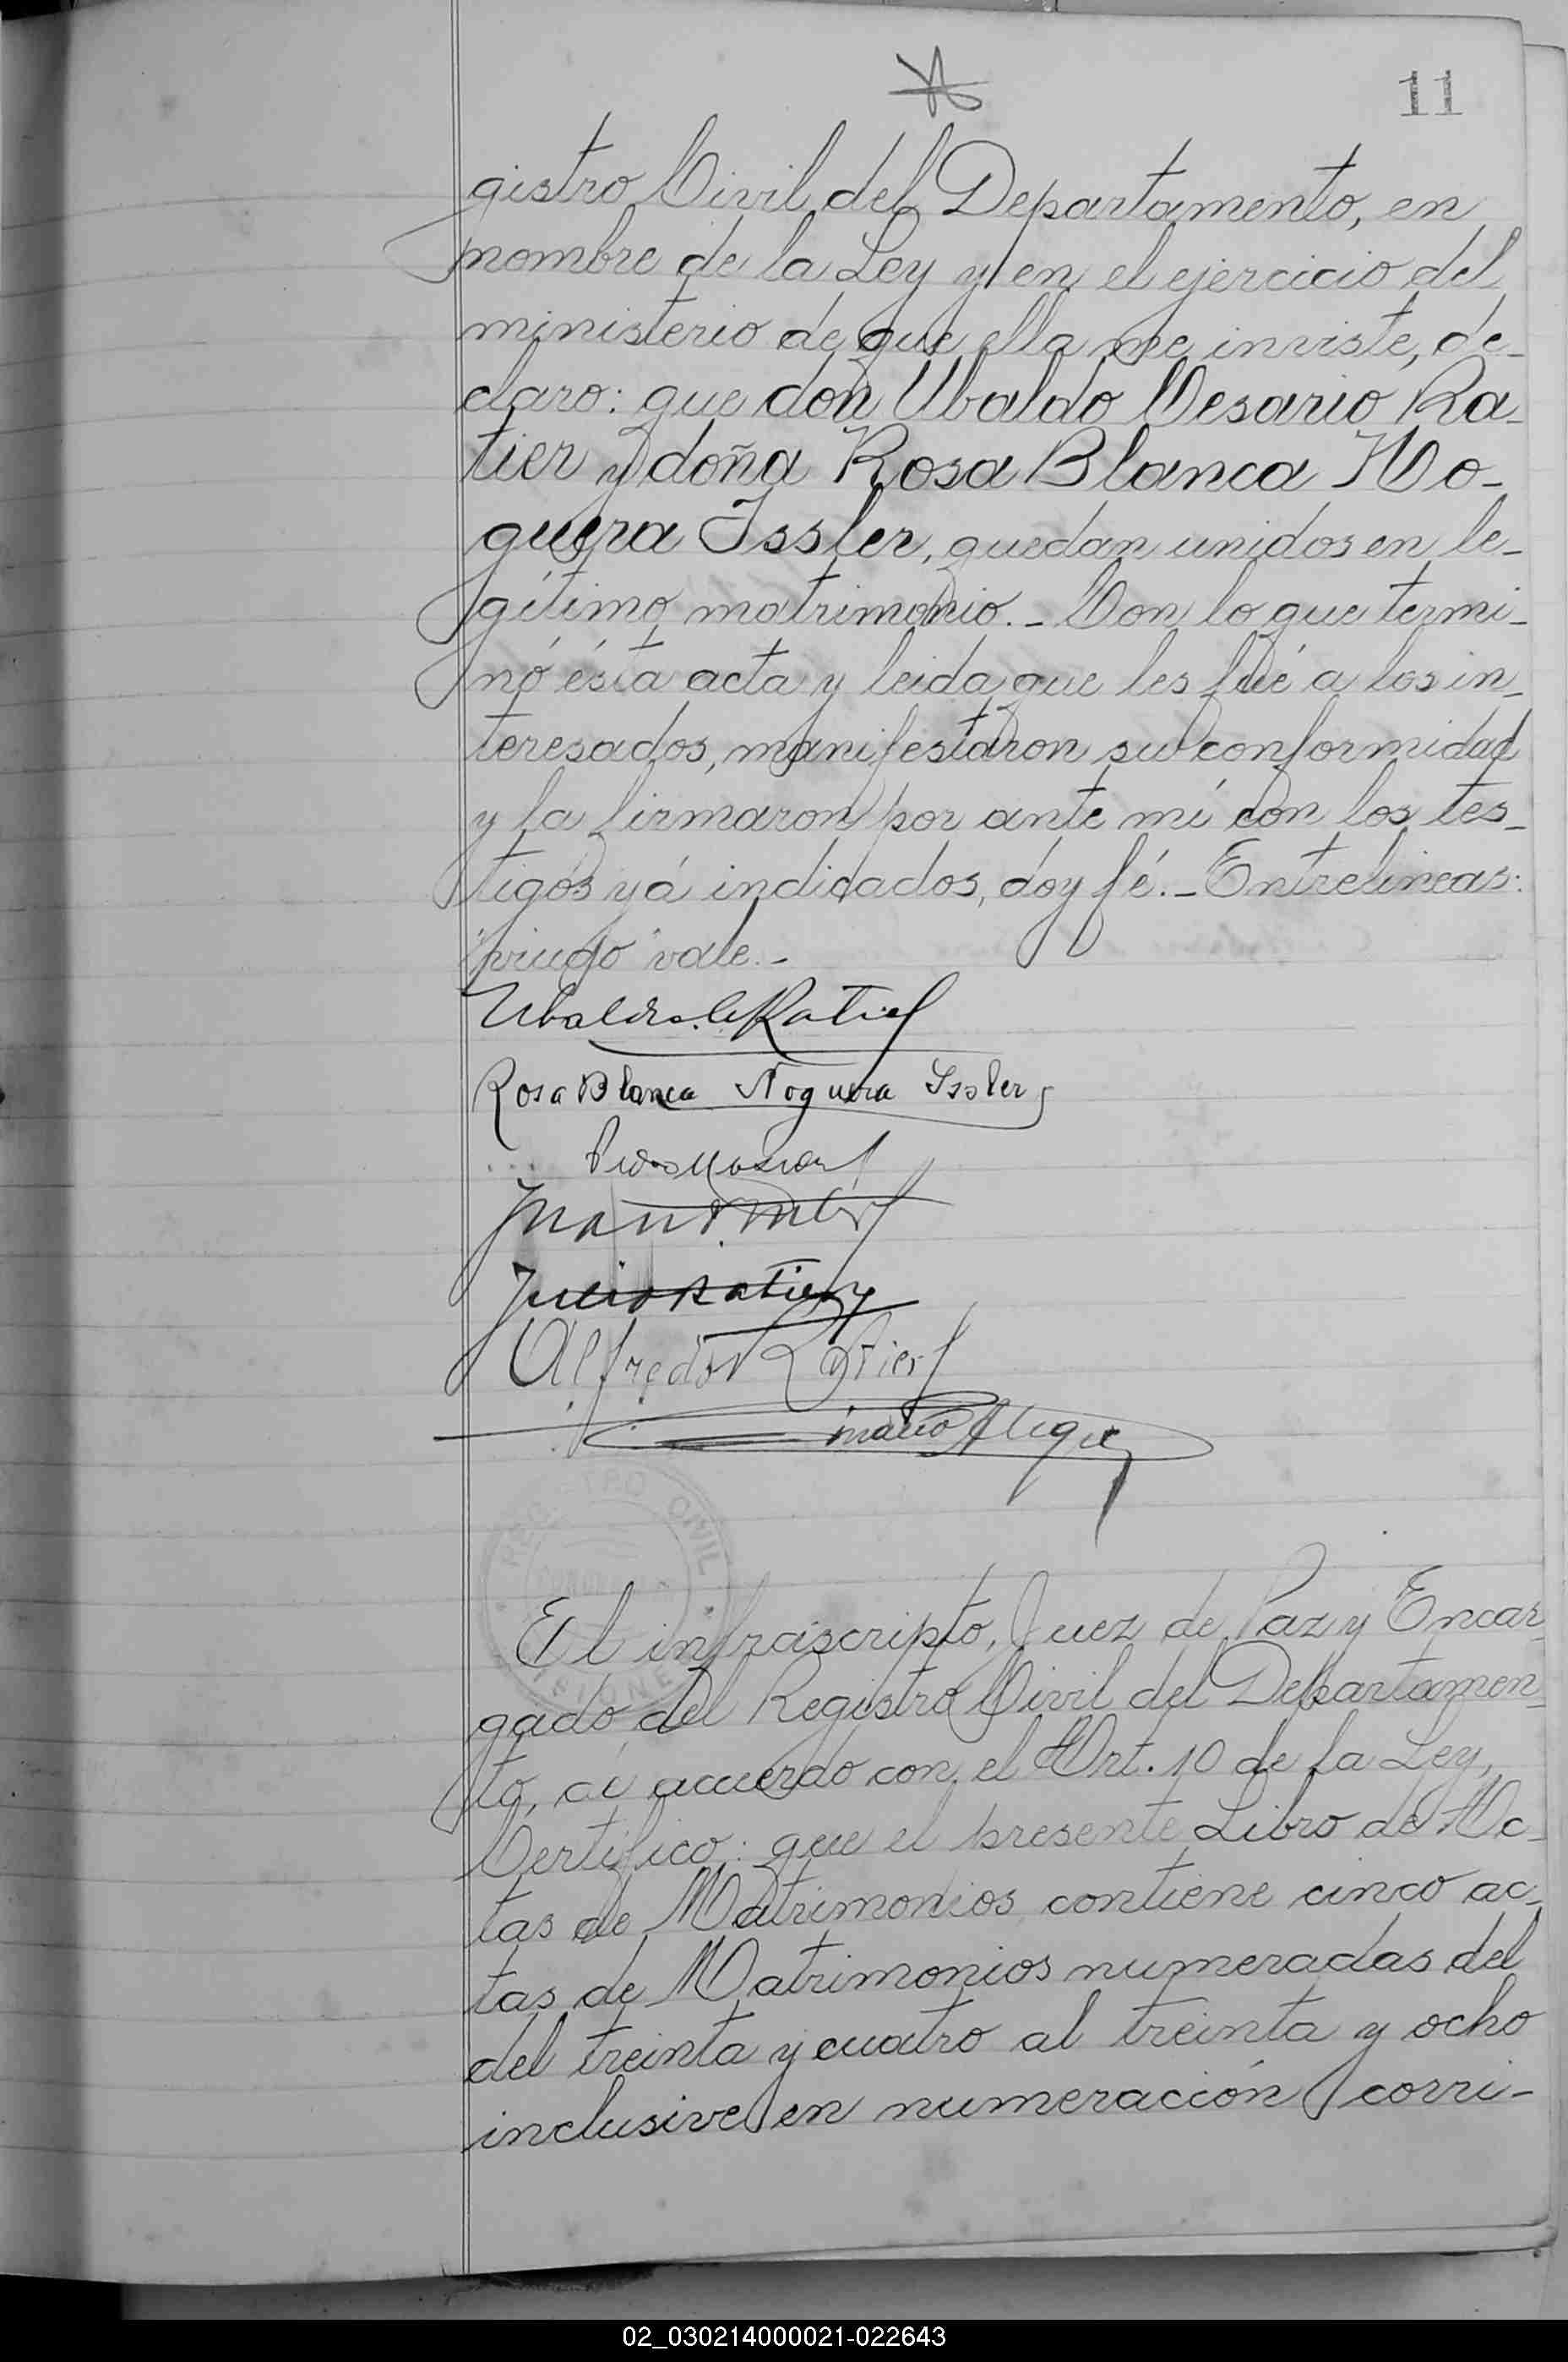 11
gistro Civil del Departamento, en
nombre de la Ley y en el ejercicio del
ministerio de que ella me inviste, de-
claro: que don Ubaldo Cesario Ra-
tier y doña Rosa Blanca No-
guera Issler, quedan unidos en le-
gítimo matrimonio.- Con lo que termi-
nó ésta acta y leida que les fué a los in-
teresados, manifestaron su conformidad
y la firmaron por ante mí con los tes-
tigos yá indicados, doy fé.- Entrelineas:
"viudo" vale.-
Ubaldo C. Ratier
Rosa Blanca Noguera Issler
Juan
Julio Ratier
Alfredo Ratier
Mario Alegre
REGISTRO CIVIL
MISIONES
El infrascripto, Juez de Paz y Encar-
gado del Registro Civil del Departamen-
to, de acuerdo con el Art. 10 de la Ley,
Certifico: que el presente Libro de Ac-
tas de Matrimonios contiene cinco ac-
tas de Matrimonios numeradas del
del treinta y cuatro al treinta y ocho
inclusive en numeración corri-
02_030214000021-022643